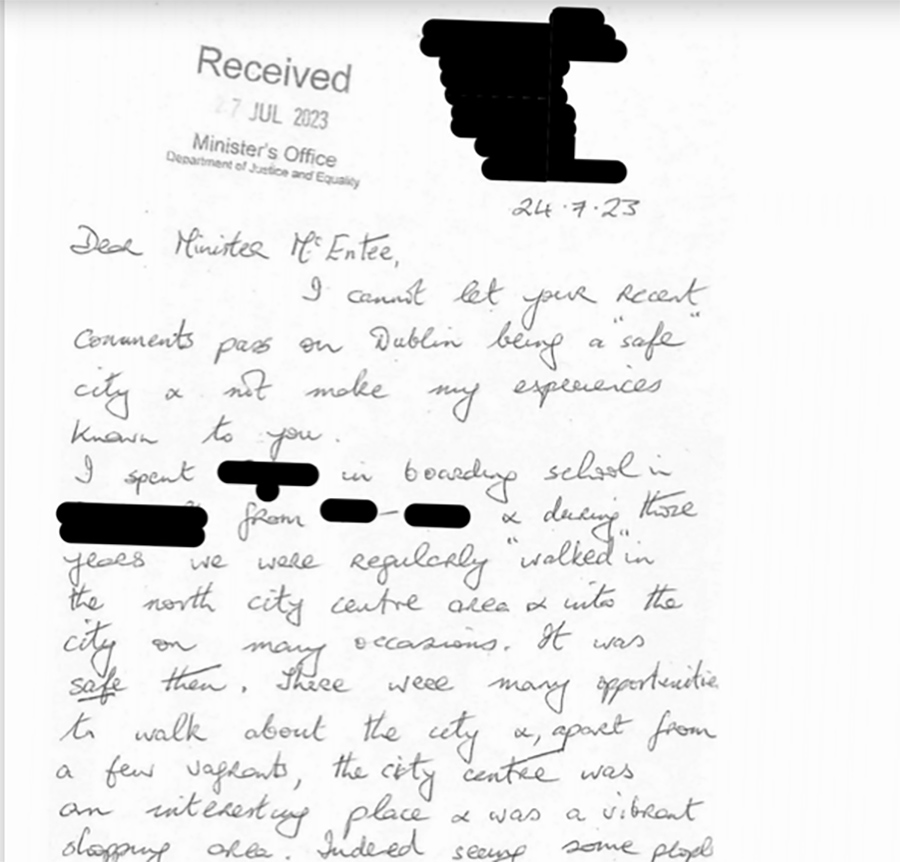 Received
27 JUL 2023
Minister's Office
Department of Justice and Equality
24.7.23
Dear Minister McEntee,
I cannot let your recent
comments pass on Dublin being a "safe"
city & not make my experiences
known to you.
I spent in boarding school in
from – & during those
years we were regularly "walked" in
the north city centre area & into the
city on many occasions. It was
safe then. There were many opportunitie
to walk about the city &, apart from
a few vagrants, the city centre was
an interesting place & was a vibrant
shopping area. Indeed seeing some peopl